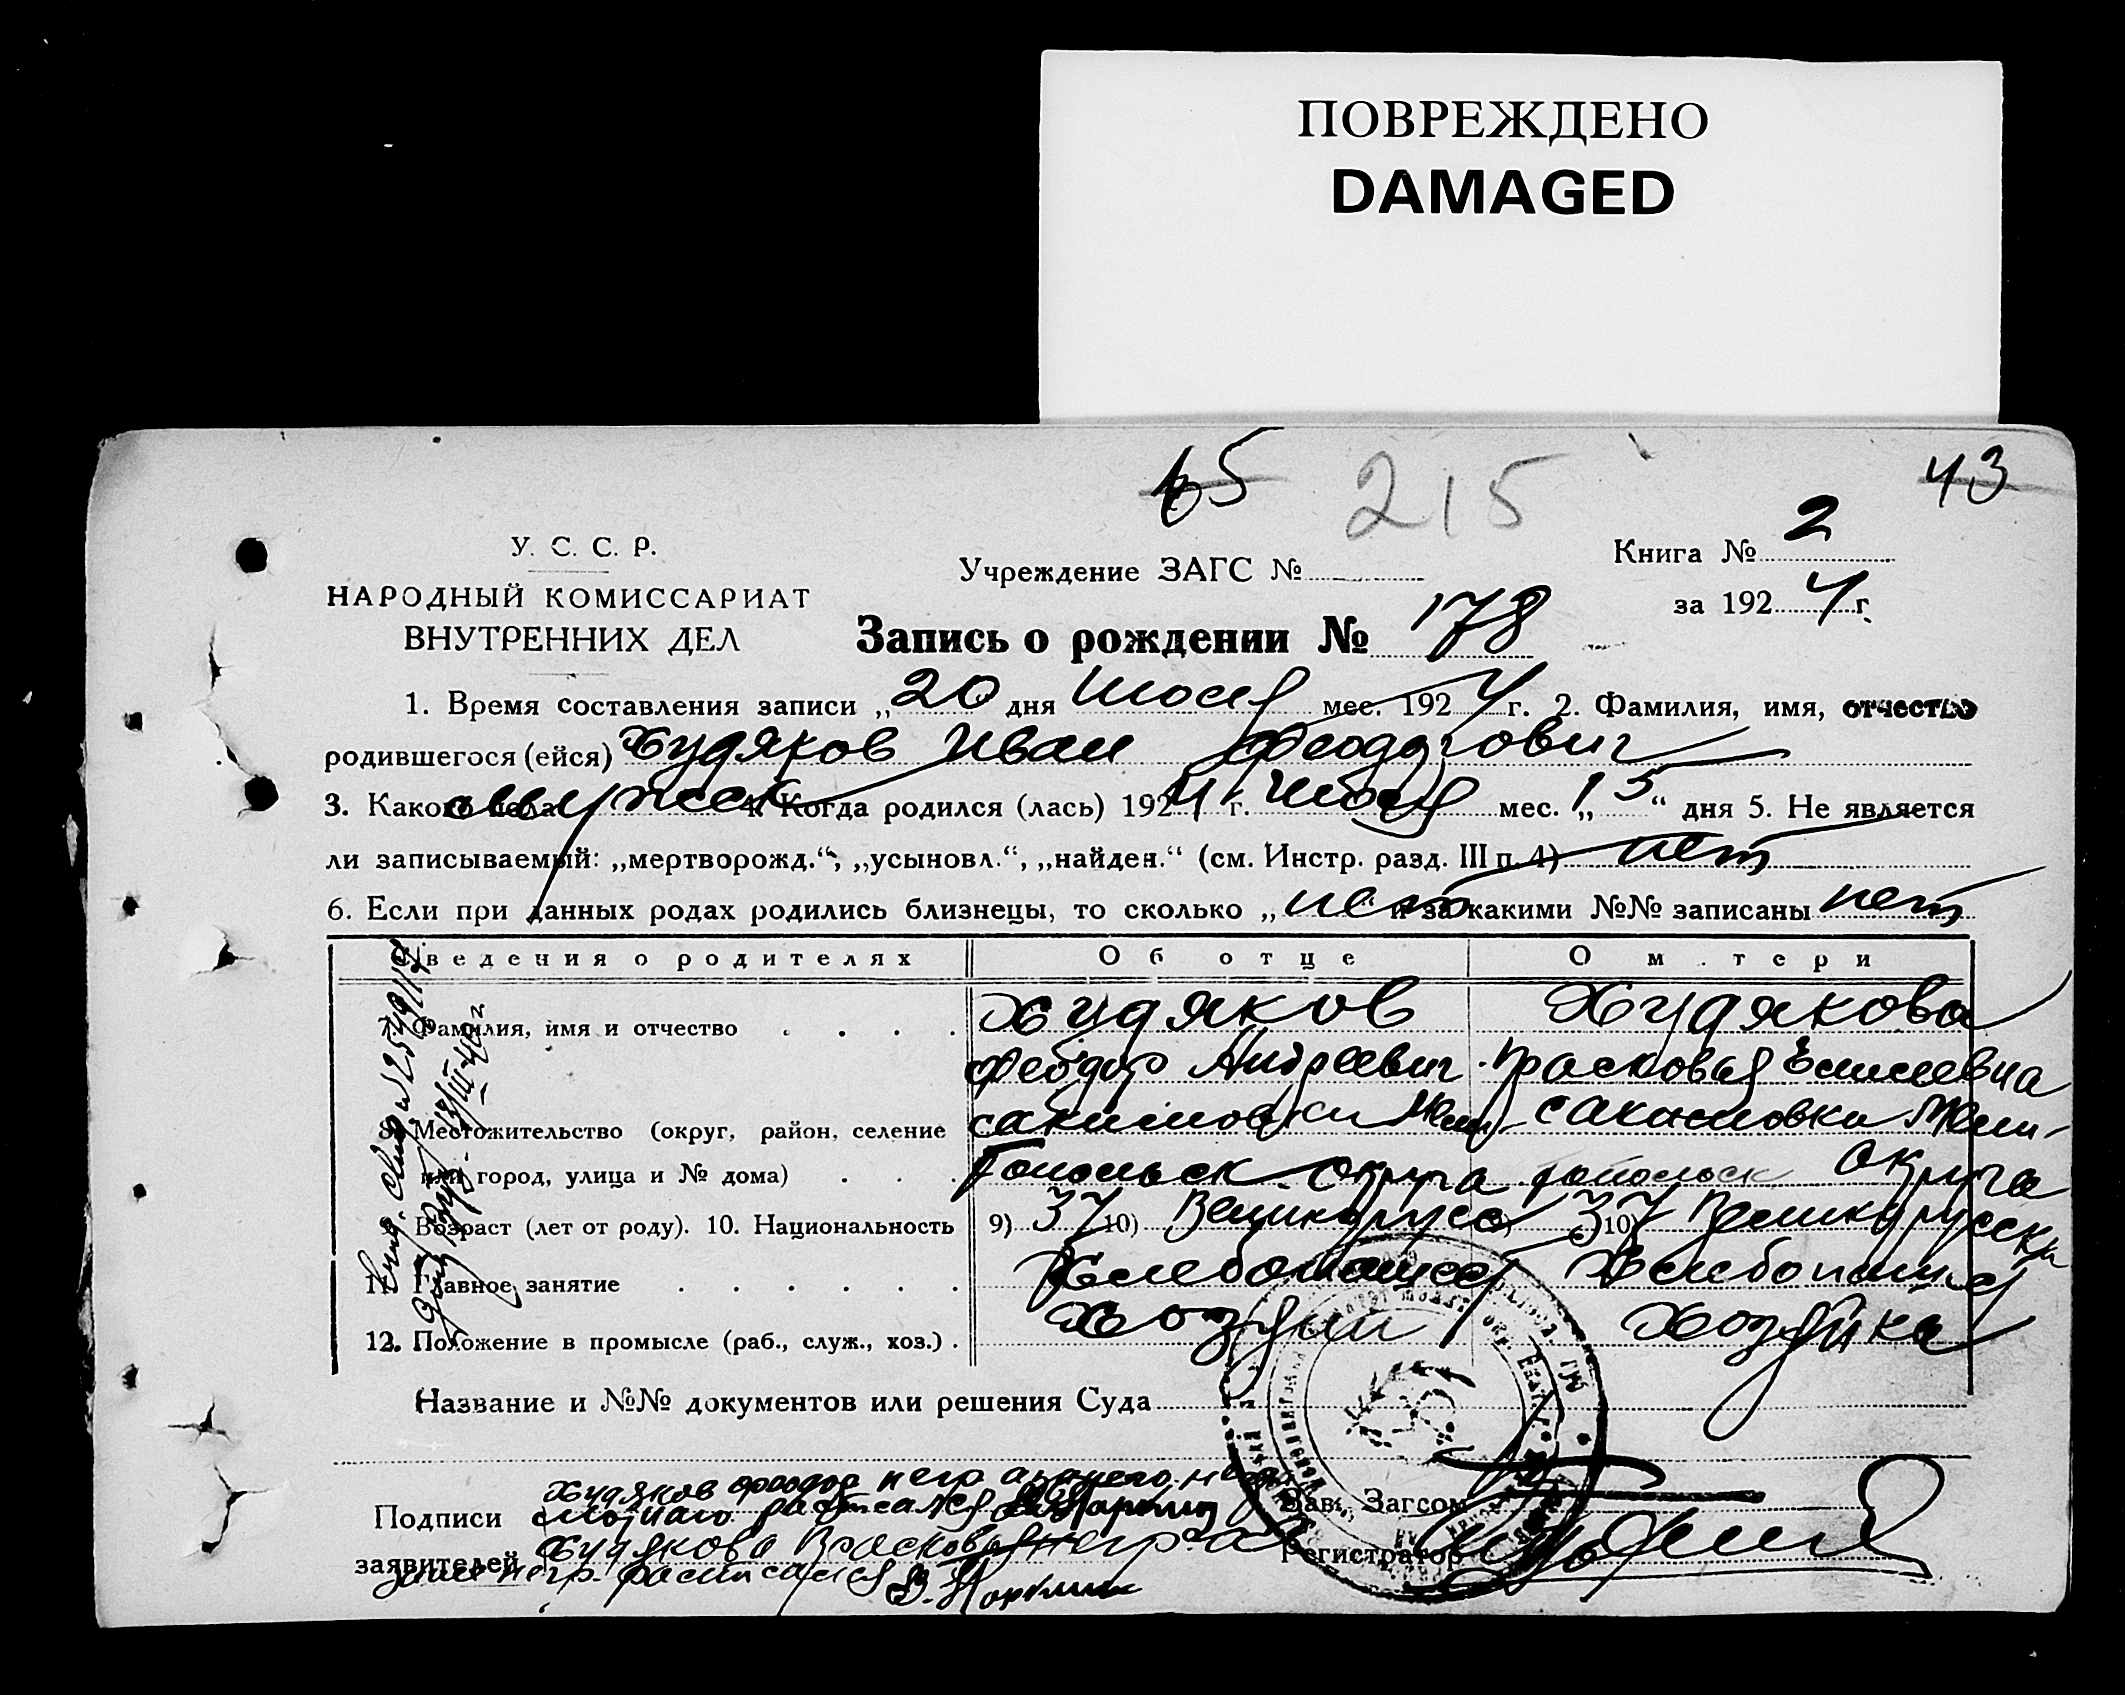 ПОВРЕЖДЕНО
DAMAGED
65 215 43
У. С. С. Р.
НАРОДНЫЙ КОМИССАРИАТ
ВНУТРЕННИХ ДЕЛ
Учреждение ЗАГС №
Книга № 2
за 1924 г.
Запись о рождении № 178
1. Время составления записи „20 дня Июля мес. 1924 г. 2. Фамилия, имя, отчество
родившегося (ейся) Худяков Иван Феодорович
3. Какого пола мужск 4. Когда родился (лась) 1924 г. Июля мес. „15“ дня 5. Не является
ли записываемый: „мертворожд.“, „усыновл.“, „найден.“ (см. Инстр. разд. III п. 4) нет
6. Если при данных родах родились близнецы, то сколько „нет и за какими №№ записаны нет
Сведения о родителях Об отце О матери
7. Фамилия, имя и отчество Худяков Худякова
Феодор Андреевич Прасковья Елисеевна
8. Местожительство (округ, район, селение
или город, улица и № дома)
округа округа
9. Возраст (лет от роду). 10. Национальность 9) 37 10) Великорусс 37 10) Великорусска
11. Главное занятие Хлебопашец Хлебопашец
12. Положение в промысле (раб., служ., хоз.) Хозяин Хозяйка
Название и №№ документов или решения Суда
Подписи
заявителей
Худяков Феодор негр а за него не
Худякова Прасковья негр а за
нее негр. расписался
Зав. Загсом
Регистратор